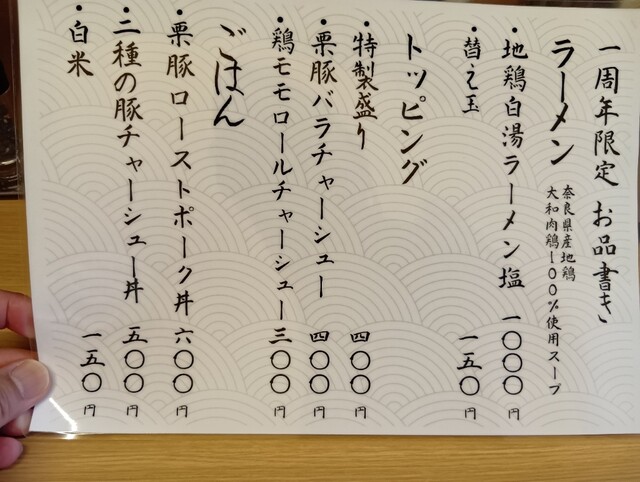 一周年限定 お品書き
ラーメン
奈良県産地鶏
大和肉鶏100%使用スープ
・地鶏白湯ラーメン塩 一〇〇〇円
・替え玉 一五〇円
トッピング
・特製盛り 四〇〇円
・栗豚バラチャーシュー 四〇〇円
・鶏モモロールチャーシュー 三〇〇円
ごはん
・栗豚ローストポーク丼 六〇〇円
・二種の豚チャーシュー丼 五〇〇円
・白米 一五〇円